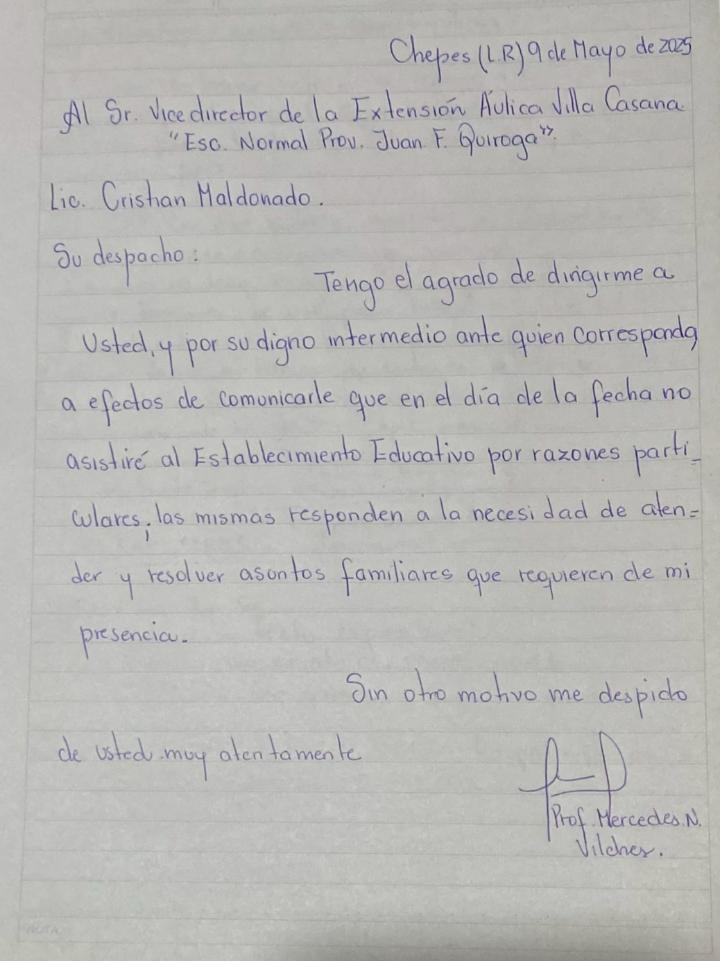 Chepes (L.R) 9 de Mayo de 2025
Al Sr. Vicedirector de la Extensión Áulica Villa Casana
"Esc. Normal Prov. Juan F. Quiroga".
Lic. Cristian Maldonado.
Su despacho:
Tengo el agrado de dirigirme a
Usted, y por su digno intermedio ante quien corresponda
a efectos de comunicarle que en el día de la fecha no
asistiré al Establecimiento Educativo por razones parti_
culares, las mismas responden a la necesidad de aten=
der y resolver asuntos familiares que requieren de mi
presencia.
Sin otro motivo me despido
de usted muy atentamente
Prof. Mercedes. N.
Vilches.
NOTA